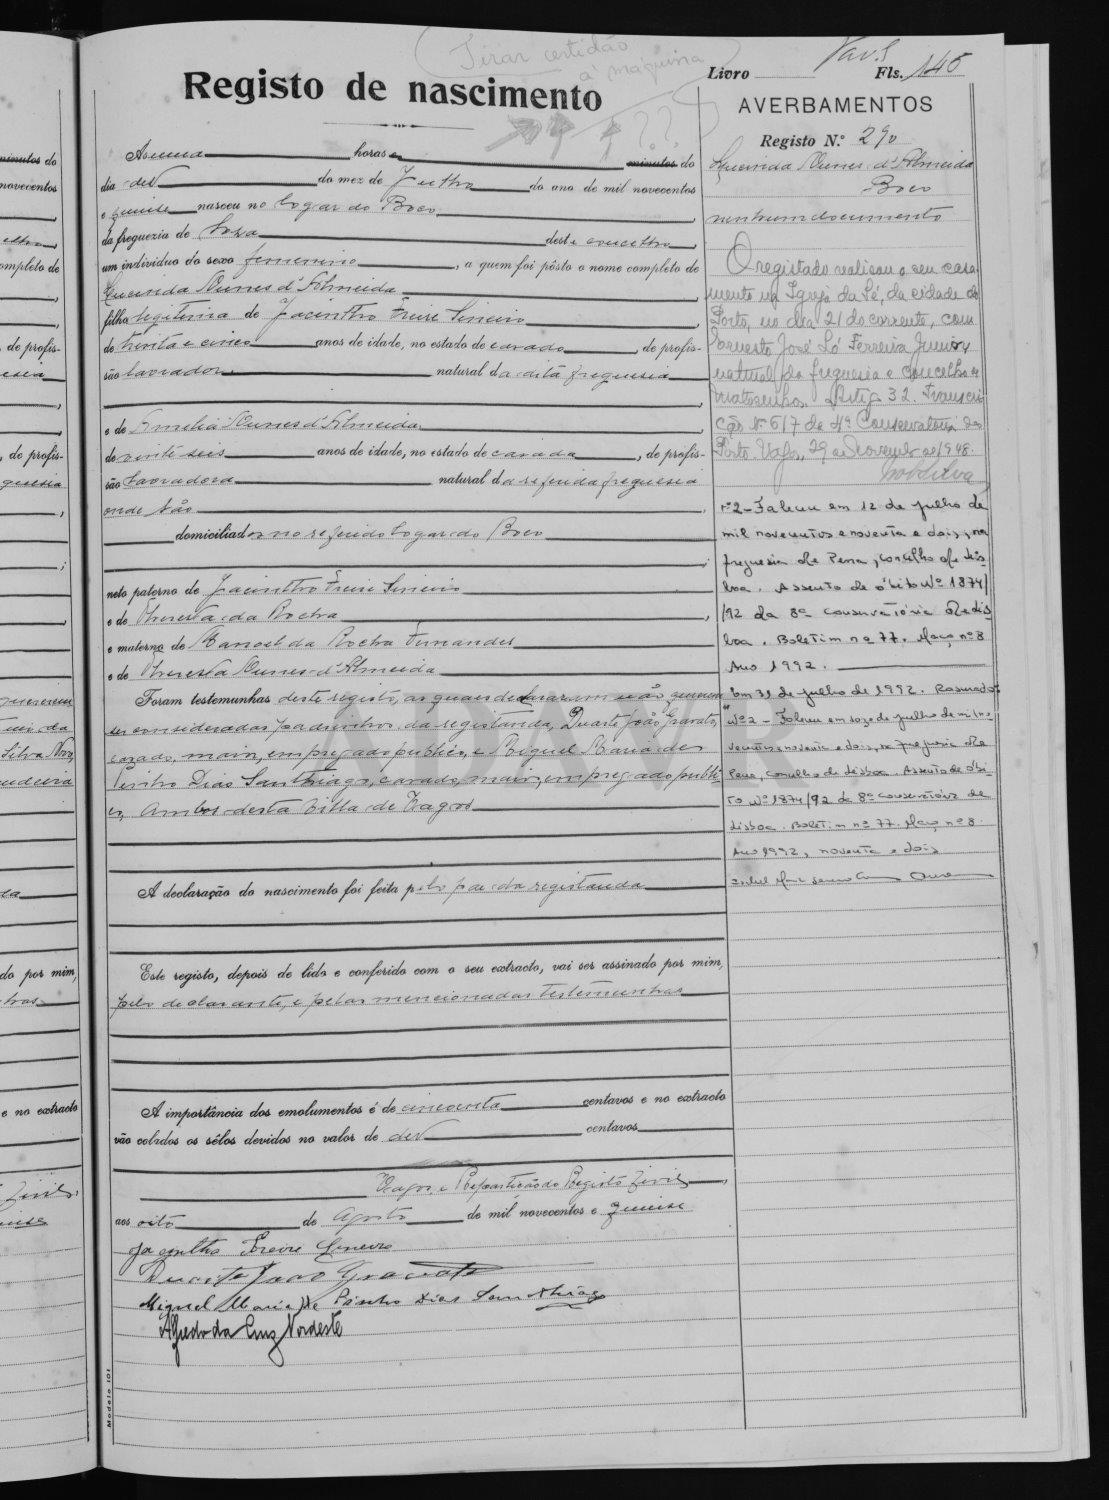 Tirar certidão
à maquina
Registo de nascimento
A's uma horas e minutos do
dia dez do mez de Julho do ano de mil novecentos
e quinze nasceu no logar do Boco
da freguezia de Soza deste concelho,
um individuo do sexo femenino, a quem foi pôsto o nome completo de
Nunes d'Almeida
filha legitima de Jacintho Freire
de trinta e cinco anos de idade, no estado de casado, de profis-
são lavrador natural da dita freguesia
e de Amelia Nunes d'Almeida
de vinte seis anos de idade, no estado de casada, de profis-
são lavradora natural da referida freguesia
onde são
domiciliados no referido logar do Boco
neto paterno de Jacintho Freire
e de Theresa da Rocha,
e materno de Manoel da Rocha Fernandes
e de Theresa Nunes d'Almeida
Foram testemunhas deste registo, as quaes declararam não quererem
ser consideradas padrinhos da registanda, Duarte João Gravato,
casado, maior, empregado publico, e Miguel Maria de
Pinho Dias Santhiago, casado, maior, empregado publi-
co, ambos desta Villa de Vagos
A declaração do nascimento foi feita pelo pae da registanda
Este registo, depois de lido e conferido com o seu extracto, vai ser assinado por mim,
pelo declarante, e pelas mencionadas testemunhas
A importância dos emolumentos é de cincoenta centavos e no extracto
vão colados os sêlos devidos no valor de dez centavos
Vagos, e Repartição do Registo Civil,
aos oito de Agosto de mil novecentos e quinze
Jacintho Freire
Duarte João Gravato
Miguel Maria de Pinho Dias Santhiago
Alfredo da Cruz Nordeste
Modelo 101
Livro Fls. 145
AVERBAMENTOS
Registo N.º 290
Nunes d'Almeida
Boco
nenhum documento
O registado realisou o seu casa-
mento na Igreja da Sé, da cidade do
Porto, no dia 21 do corrente, com
Ernesto José Ló Ferreira Junior,
natural da freguesia e concelho de
Matosinhos. Artigo 32. Transcri-
ção nº 617 da 4ª Conservatória do
Porto. Vagos, 29 de Novembro de 1948.
Nº2 - Faleceu em 12 de julho de
mil novecentos e noventa e dois, na
freguesia de Pena, concelho de Lis-
boa. Assento de óbito Nº 1874/
/92 da 8ª Conservatória de Lis-
boa. Boletim nº 77. Maço nº 8
Ano 1992.
Em 31 de julho de 1992. Rasurado:
"Nº2 - Faleceu em doze de julho de mil no-
vecentos e noventa e dois, na freguesia de
Pena, concelho de Lisboa. Assento de óbi-
to Nº 1874/92 da 8ª Conservatória de
Lisboa. Boletim nº 77. Maço nº 8.
Ano 1992, noventa e dois